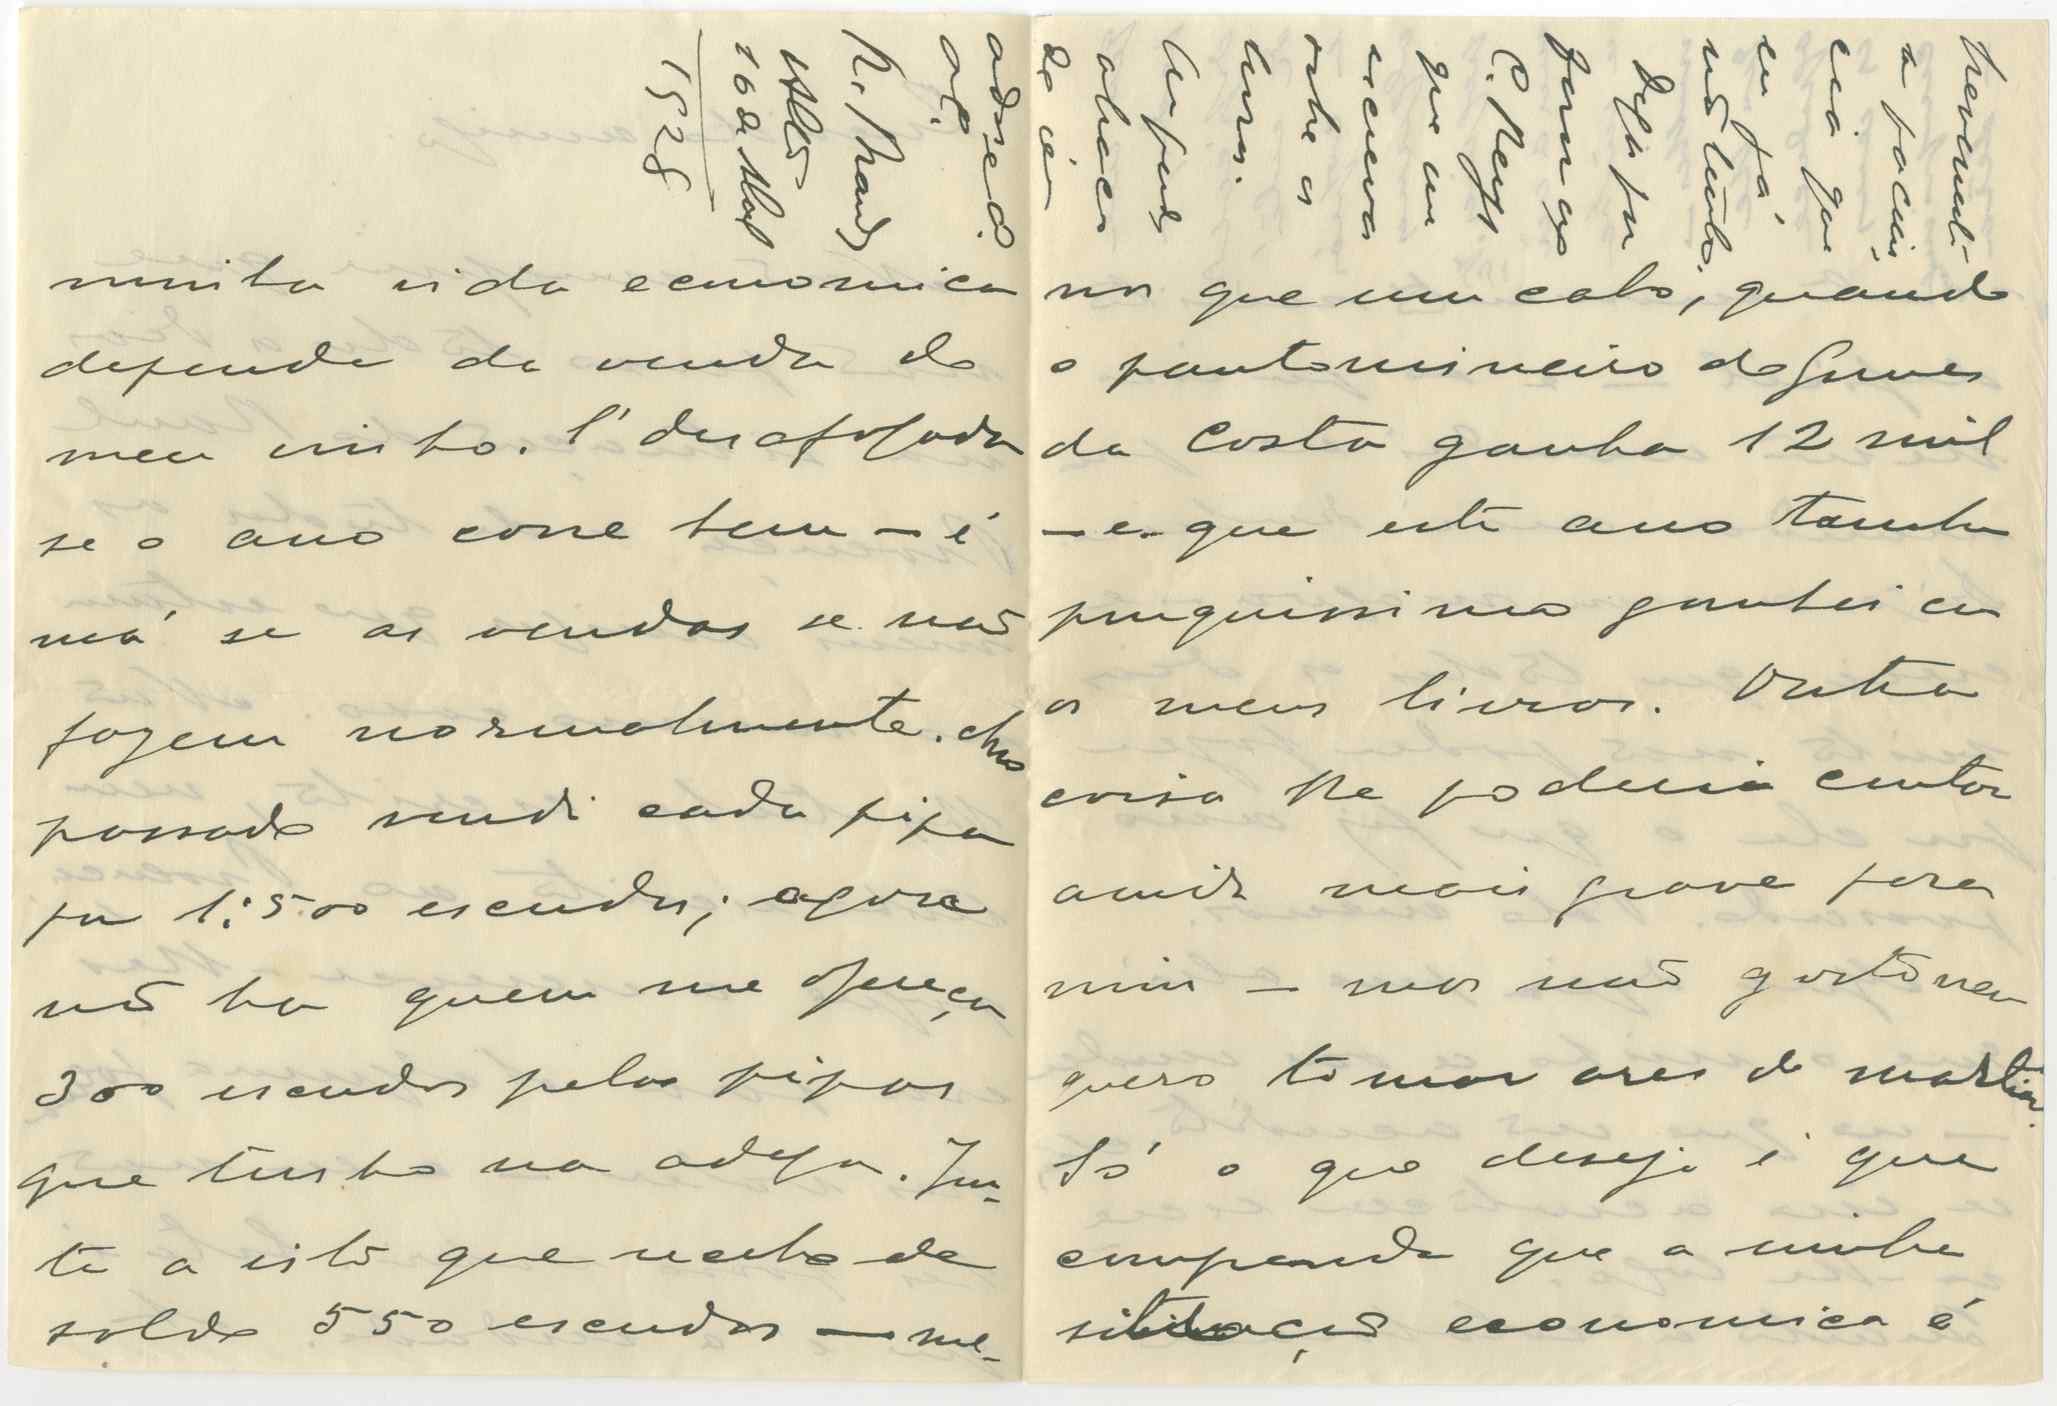 minha vida economica
depende da venda do
meu vinho. É desafogada
se o ano corre bem — é
má se as vendas se não
fazem normalmente. Ano
passado vendi cada pipa
por 1:500 escudos; agora
não ha quem me ofereça
300 escudos pelas pipas
que tenho na adega. Jun-
te a isto que recebo de
soldo 550 escudos — me-
nos que um cabo, quando
o pantomineiro do Gomes
da Costa ganha 12 mil
— e que este ano tambem
pouquissimo ganhei com
os meus livros. Outra
coisa lhe poderia contar
ainda mais grave para
mim — mas não gosto nem
quero tomar ares de martir.
Só o que desejo é que
compreenda que a minha
situação economica é
a paciencia
cia que
eu já
não tenho.
C. Reys
que um
escreva
sobre os
livros.
Um grande
abraço
do seu
R. Brandão
16 de Março
1928